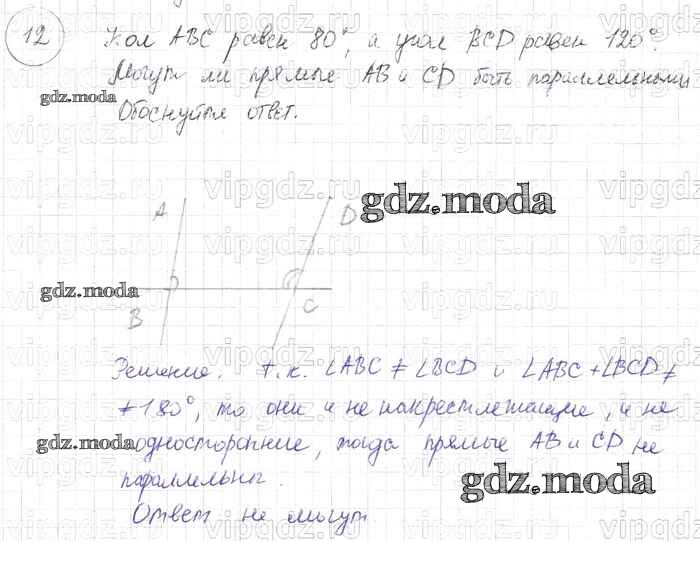 12 Угол ABC равен 80°, а угол BCD равен 120°.
Могут ли прямые AB и CD быть параллельными
gdz.moda
Обоснуйте ответ.
vipgdz.ru
A D
gdz.moda
gdz.moda
B C
Решение. т.к. ∠ABC ≠ ∠BCD и ∠ABC + ∠BCD ≠
≠ 180°, то они и не накрестлежащие, и не
gdz.moda
односторонние, тогда прямые AB и CD не
параллельны.
gdz.moda
Ответ не могут.